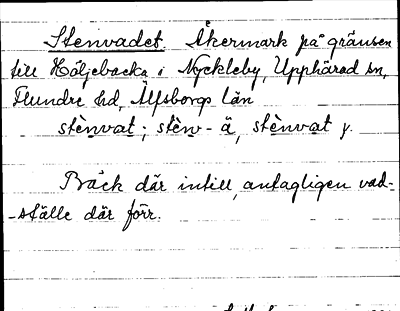 Stenvadet. Åkermark på gränsen
till Höljebacka i Nyckleby, Upphärad sn,
Flundre hd, Älfsborgs län
stènvat; stèn-ä, stènvat y.
Bäck där intill, antagligen vad-
-ställe där förr.